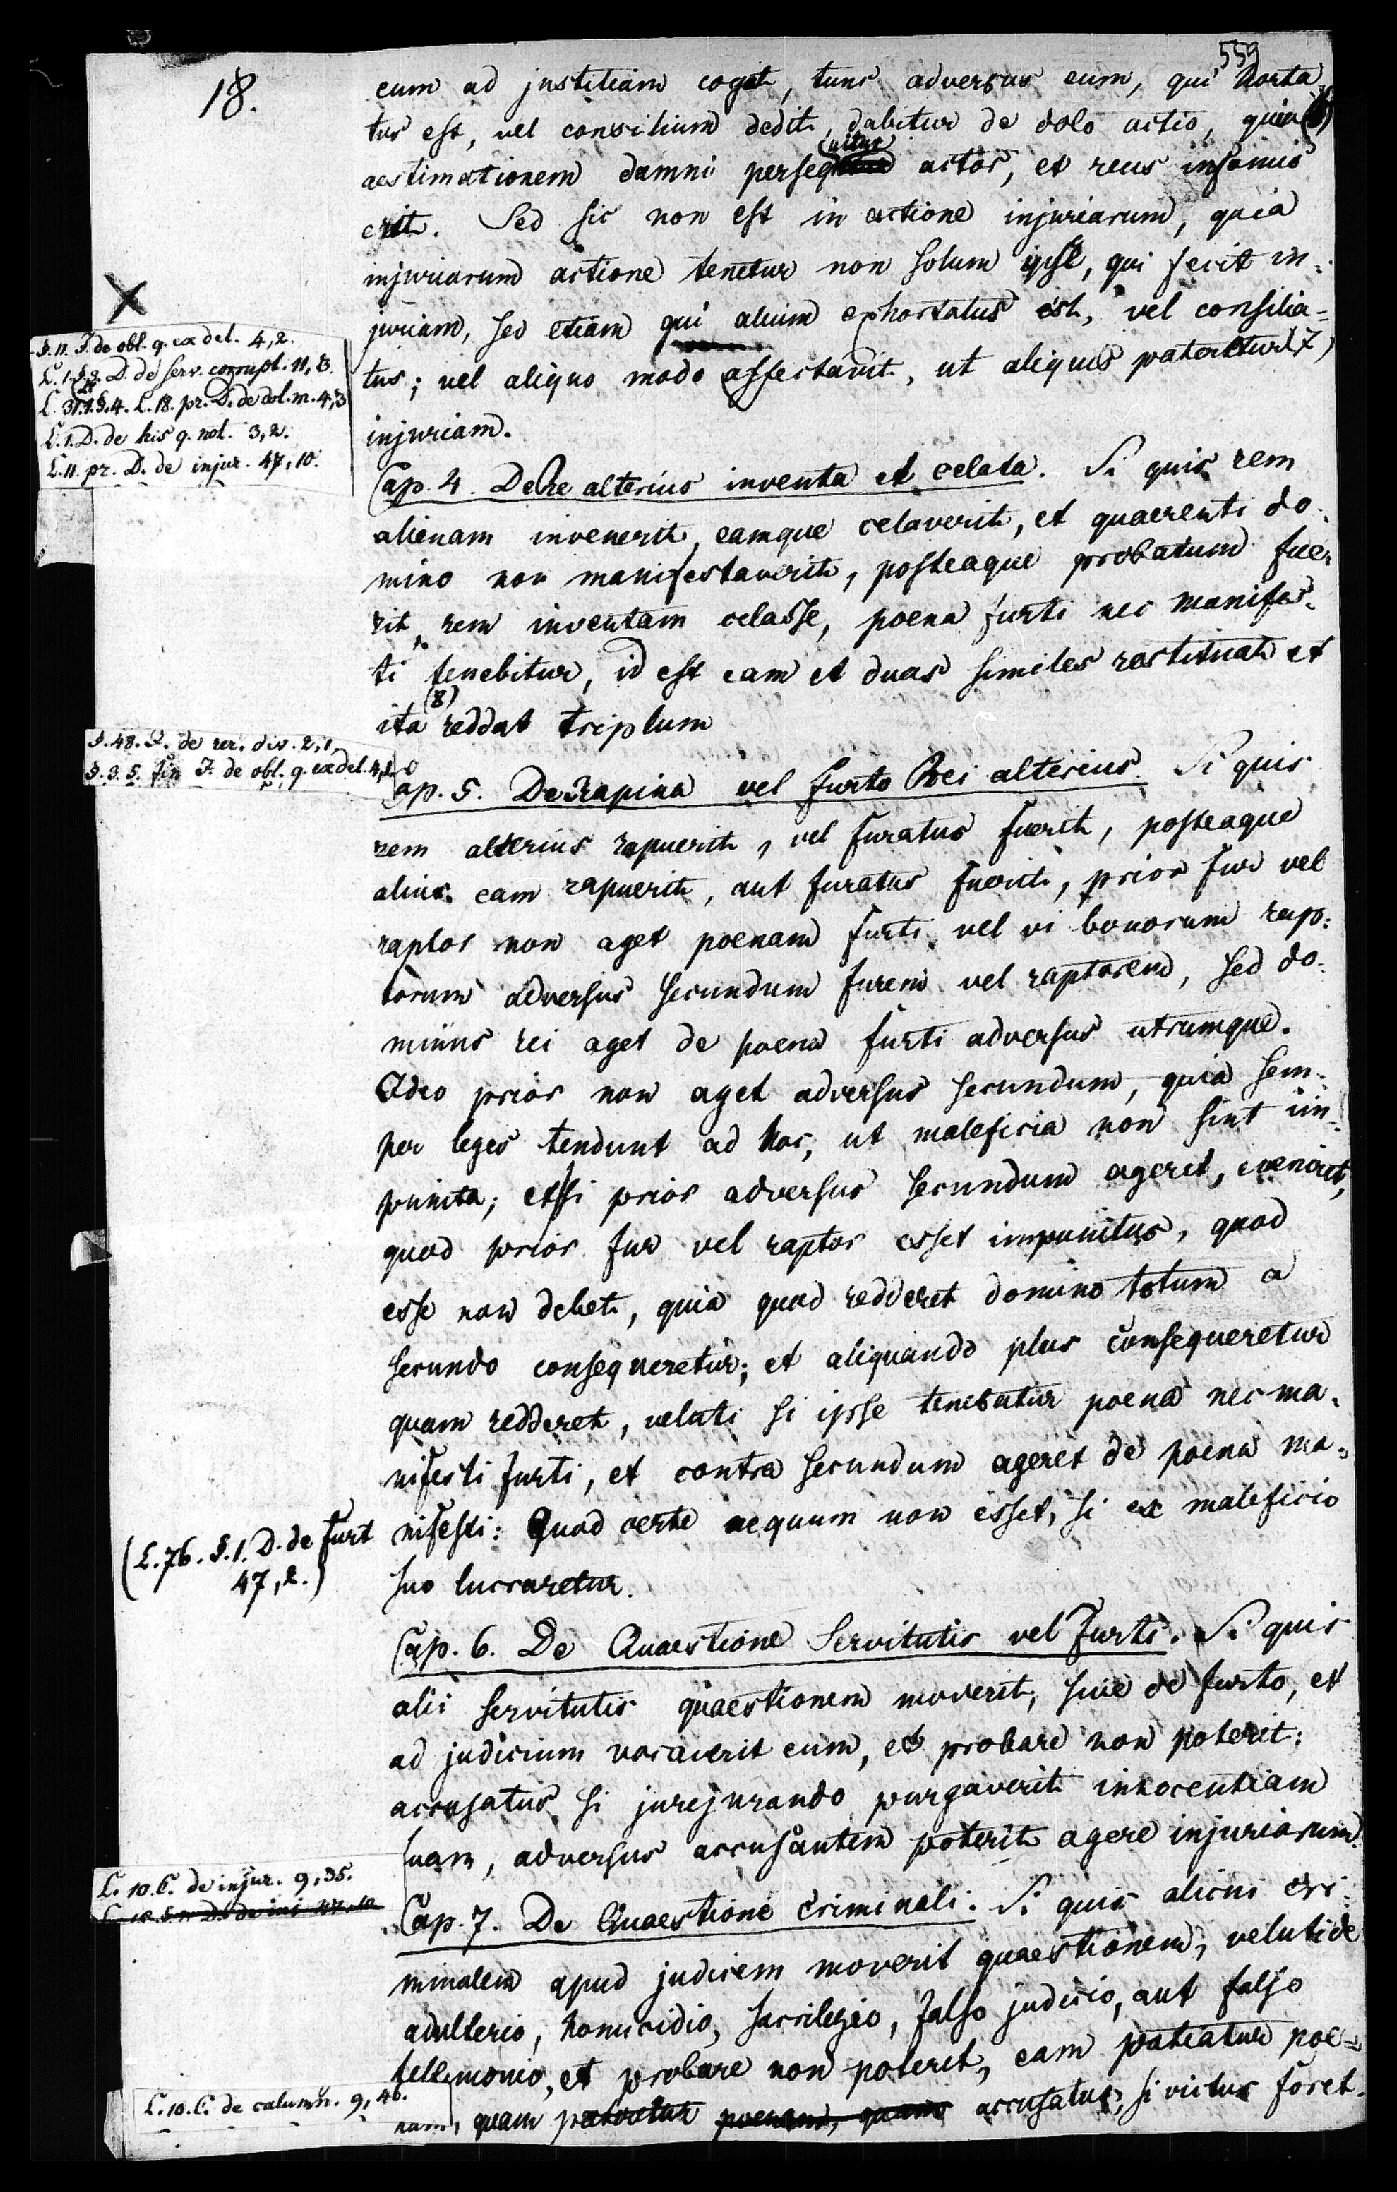 559
18.
eum ad justitiam coget, tunc adversus eum, qui horta
tus est, vel consilium dedit, dabitur de dolo actio, quia (6)
aestimationem damni persequitur actor, et reus infamis
erit. Sed sic non est in actione injuriarum, quia
injuriarum actione tenetur non solum ipse, qui fecit in-
juriam, sed etiam qui alium exhortatus est, vel consilia-
tus; vel aliquo modo affectavit, ut aliquis pateretur (7)
injuriam.
X
§. 11. I. de obl. q. ex del. 4, 2.
L. 1. §. 3. D. de serv. corrupt. 11, 3.
L. D. de his q. not. 3, 2.
L. 11. pr. D. de injur. 47, 10.
Cap. 4. De Re alterius inventa et celata. Si quis rem
alienam invenerit, eamque celaverit, et quaerenti do-
mino non manifestaverit, posteaque probatum fue-
rit, rem inventam celasse, poena furti nec manifes-
ti tenebitur, id est eam et duas similes restituat et
ita (8) reddat triplum
§. 48. I. de rer. div. 2, 1,
§. 3. 5. fin I. de obl. q. ex del. 4, 1.
Cap. 5. De Rapina vel Furto Rei alterius. Si quis
rem alterius rapuerit, vel furatus fuerit, posteaque
alius eam rapuerit, aut furatus fuerit, prior fur vel
raptor non aget poenam furti vel vi bonorum rap-
torum adversus secundum furem vel raptorem, sed do-
minus rei aget de poena furti adversus utrumque.
Ideo prior non aget adversus secundum, quia sem-
per leges tendunt ad hoc, ut maleficia non sint im-
punita; et si prior adversus secundum ageret, eveniret,
quod prior fur vel raptor esset impunitus, quod
esse non debet, quia quod redderet domino totum a
secundo consequeretur; et aliquando plus consequeretur
quam redderet, veluti si ipse tenebatur poena nec ma-
nifesti furti, et contra secundum ageret de poena ma-
nifesti: Quod certe aequum non esset, si ex maleficio
suo lucraretur.
(L. 76. §. 1. D. de Furt
47, 2.)
Cap. 6. De Quaestione Servitutis vel Furti. Si quis
alii servitutis quaestionem moverit, sive de furto, et
ad judicium vocaverit eum, et probare non poterit;
accusatus si jurejurando purgaverit innocentiam
suam, adversus accusantem poterit agere injuriarum.
L. 10. C. de injur. 9, 35.
Cap. 7. De Quaestione Criminali. Si quis alicui cri-
minalem apud judicem moverit quaestionem, veluti de
adulterio, homicidio, sacrilegio, falso judicio, aut falso
testimonio, et probare non poterit, eam patiatur poe-
nam, quam pateretur poenam, quam accusatus, si victus foret.
L. 10. C. de calumn. 9, 46.